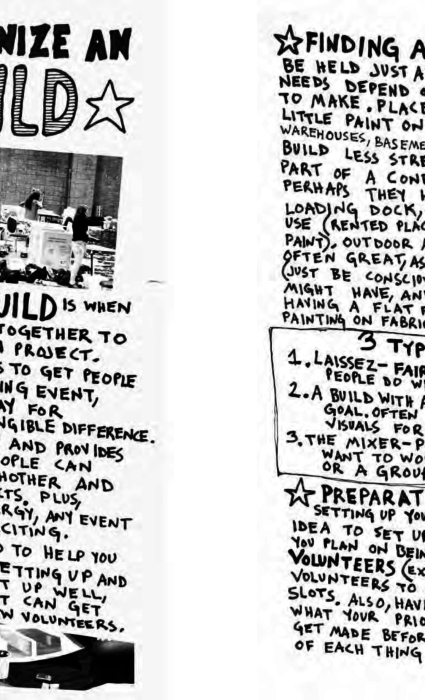 NIZE AN
LD☆
UILD IS WHEN
TOGETHER TO
PROJECT.
S TO GET PEOPLE
NG EVENT,
AY FOR
NGIBLE DIFFERENCE.
AND PROVIDES
OPLE CAN
NOTHER AND
CTS. PLUS,
RGY, ANY EVENT
CITING.
D TO HELP YOU
ETTING UP AND
T UP WELL,
T CAN GET
W VOLUNTEERS.
☆FINDING A
BE HELD JUST A
NEEDS DEPEND O
TO MAKE. PLACE
LITTLE PAINT ON
WAREHOUSES, BASEME
BUILD LESS STRE
PART OF A CONF
PERHAPS THEY H
LOADING DOCK,
USE (RENTED PLAC
PAINT). OUTDOOR A
OFTEN GREAT, AS
(JUST BE CONSCIOU
MIGHT HAVE, AN
HAVING A FLAT
PAINTING ON FABRIC
3 TYP
1. LAISSEZ-FAIR
PEOPLE DO W
2. A BUILD WITH A
GOAL. OFTEN
VISUALS FOR
3. THE MIXER-P
WANT TO WO
OR A GROU
☆PREPARAT
SETTING UP YOU
IDEA TO SET UP
YOU PLAN ON BEIN
VOLUNTEERS (EX
VOLUNTEERS TO
SLOTS. ALSO, HAV
WHAT YOUR PRIO
GET MADE BEFOR
OF EACH THING